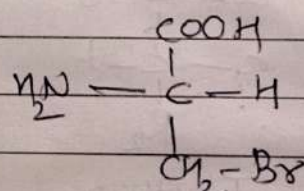 COOH
H₂N — C — H
CH₂ - Br